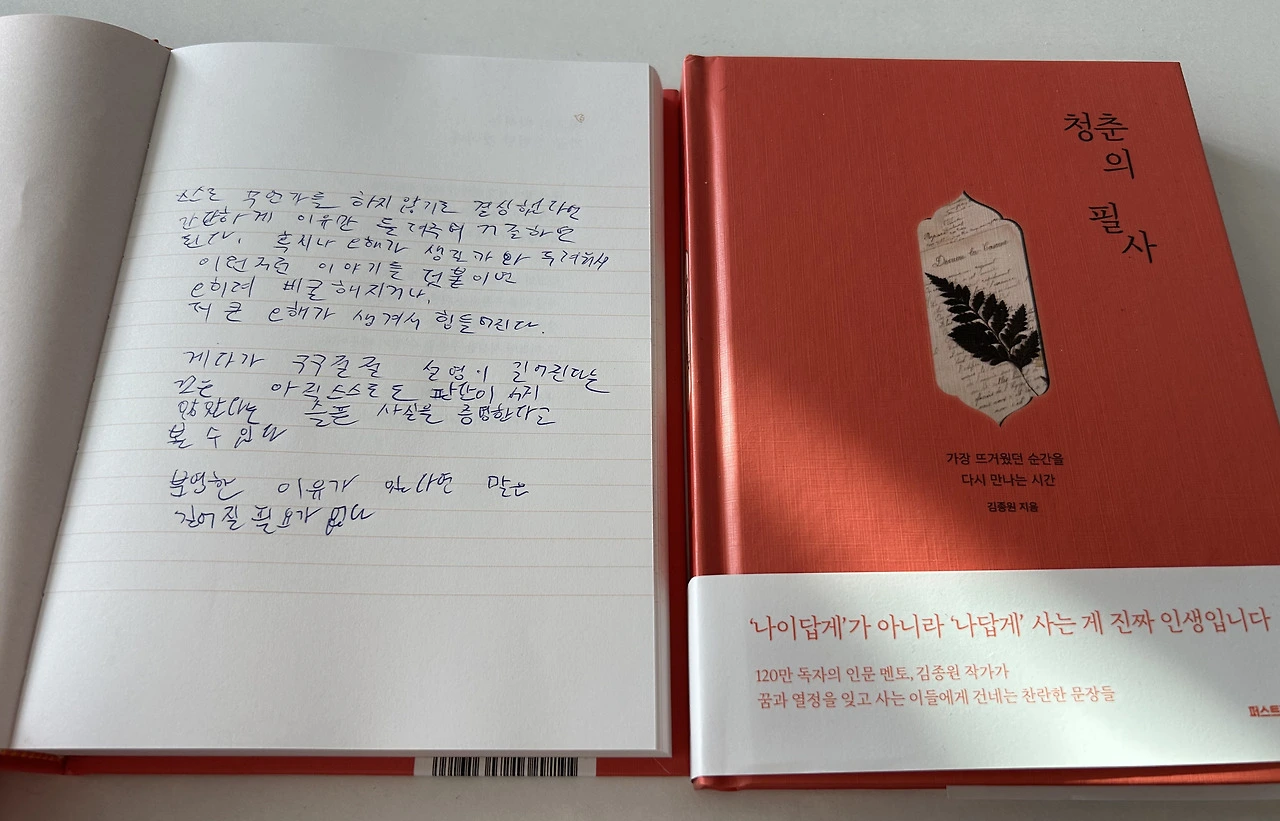 스스로 무언가를 하지 않기로 결심했다면
간단하게 이유만 들려주며 거절하면
된다. 혹시나 오해가 생길까봐 두려워서
이런저런 이야기를 덧붙이면
오히려 비굴해지거나,
더 큰 오해가 생겨서 힘들어진다.
게다가 구구절절 설명이 길어진다는
것은 아직 스스로도 판단이 서지
않았다는 슬픈 사실을 증명한다고
볼 수 있다
분명한 이유가 있다면 말은
길어질 필요가 없다
청춘
의
필
사
Documens
가장 뜨거웠던 순간을
다시 만나는 시간
김종원 지음
‘나이답게’가 아니라 ‘나답게’ 사는 게 진짜 인생입니다
120만 독자의 인문 멘토, 김종원 작가가
꿈과 열정을 잊고 사는 이들에게 건네는 찬란한 문장들
퍼스트